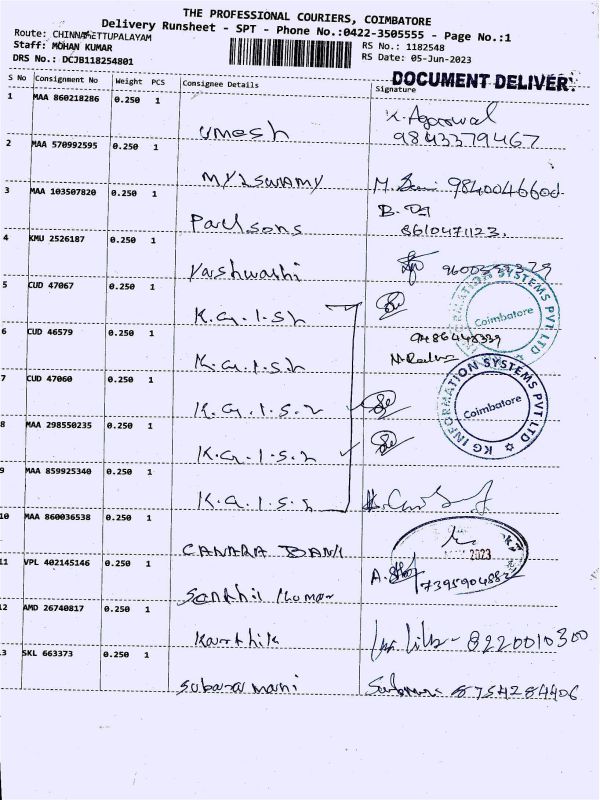 THE PROFESSIONAL COURIERS, COIMBATORE
Delivery Runsheet - SPT - Phone No.:0422-3505555 - Page No.:1
Route: CHINNAMETTUPALAYAM
RS No.: 1182548
Staff: MOHAN KUMAR
RS Date: 05-Jun-2023
DRS No.: DCJB118254801
DOCUMENT DELIVERY
S No Consignment No Weight PCS Consignee Details Signature
1 MAA 860218286 0.250 1 Umesh K. Agarwal
9843379467
2 MAA 570992595 0.250 1 Mylswamy M. 9840046600
3 MAA 103507820 0.250 1 Parksons B.
8610471123.
4 KMU 2526187 0.250 1 Varshwathi 9600
5 CUD 47067 0.250 1 K.G.I.S.L
6 CUD 46579 0.250 1 K.G.I.S.L
7 CUD 47060 0.250 1 K.G.I.S.L
8 MAA 298550235 0.250 1 K.G.I.S.L
9 MAA 859925340 0.250 1 K.G.I.S.L
INFORMATION SYSTEMS PVT LTD
Coimbatore
KG INFORMATION SYSTEMS PVT LTD
Coimbatore
10 MAA 860036538 0.250 1 CANARA BANK 2023
11 VPL 402145146 0.250 1 Senthil Kumar A. 7395904882
12 AMD 26740817 0.250 1 Karthik 8220010300
13 SKL 663373 0.250 1 Subaramani 8754284406